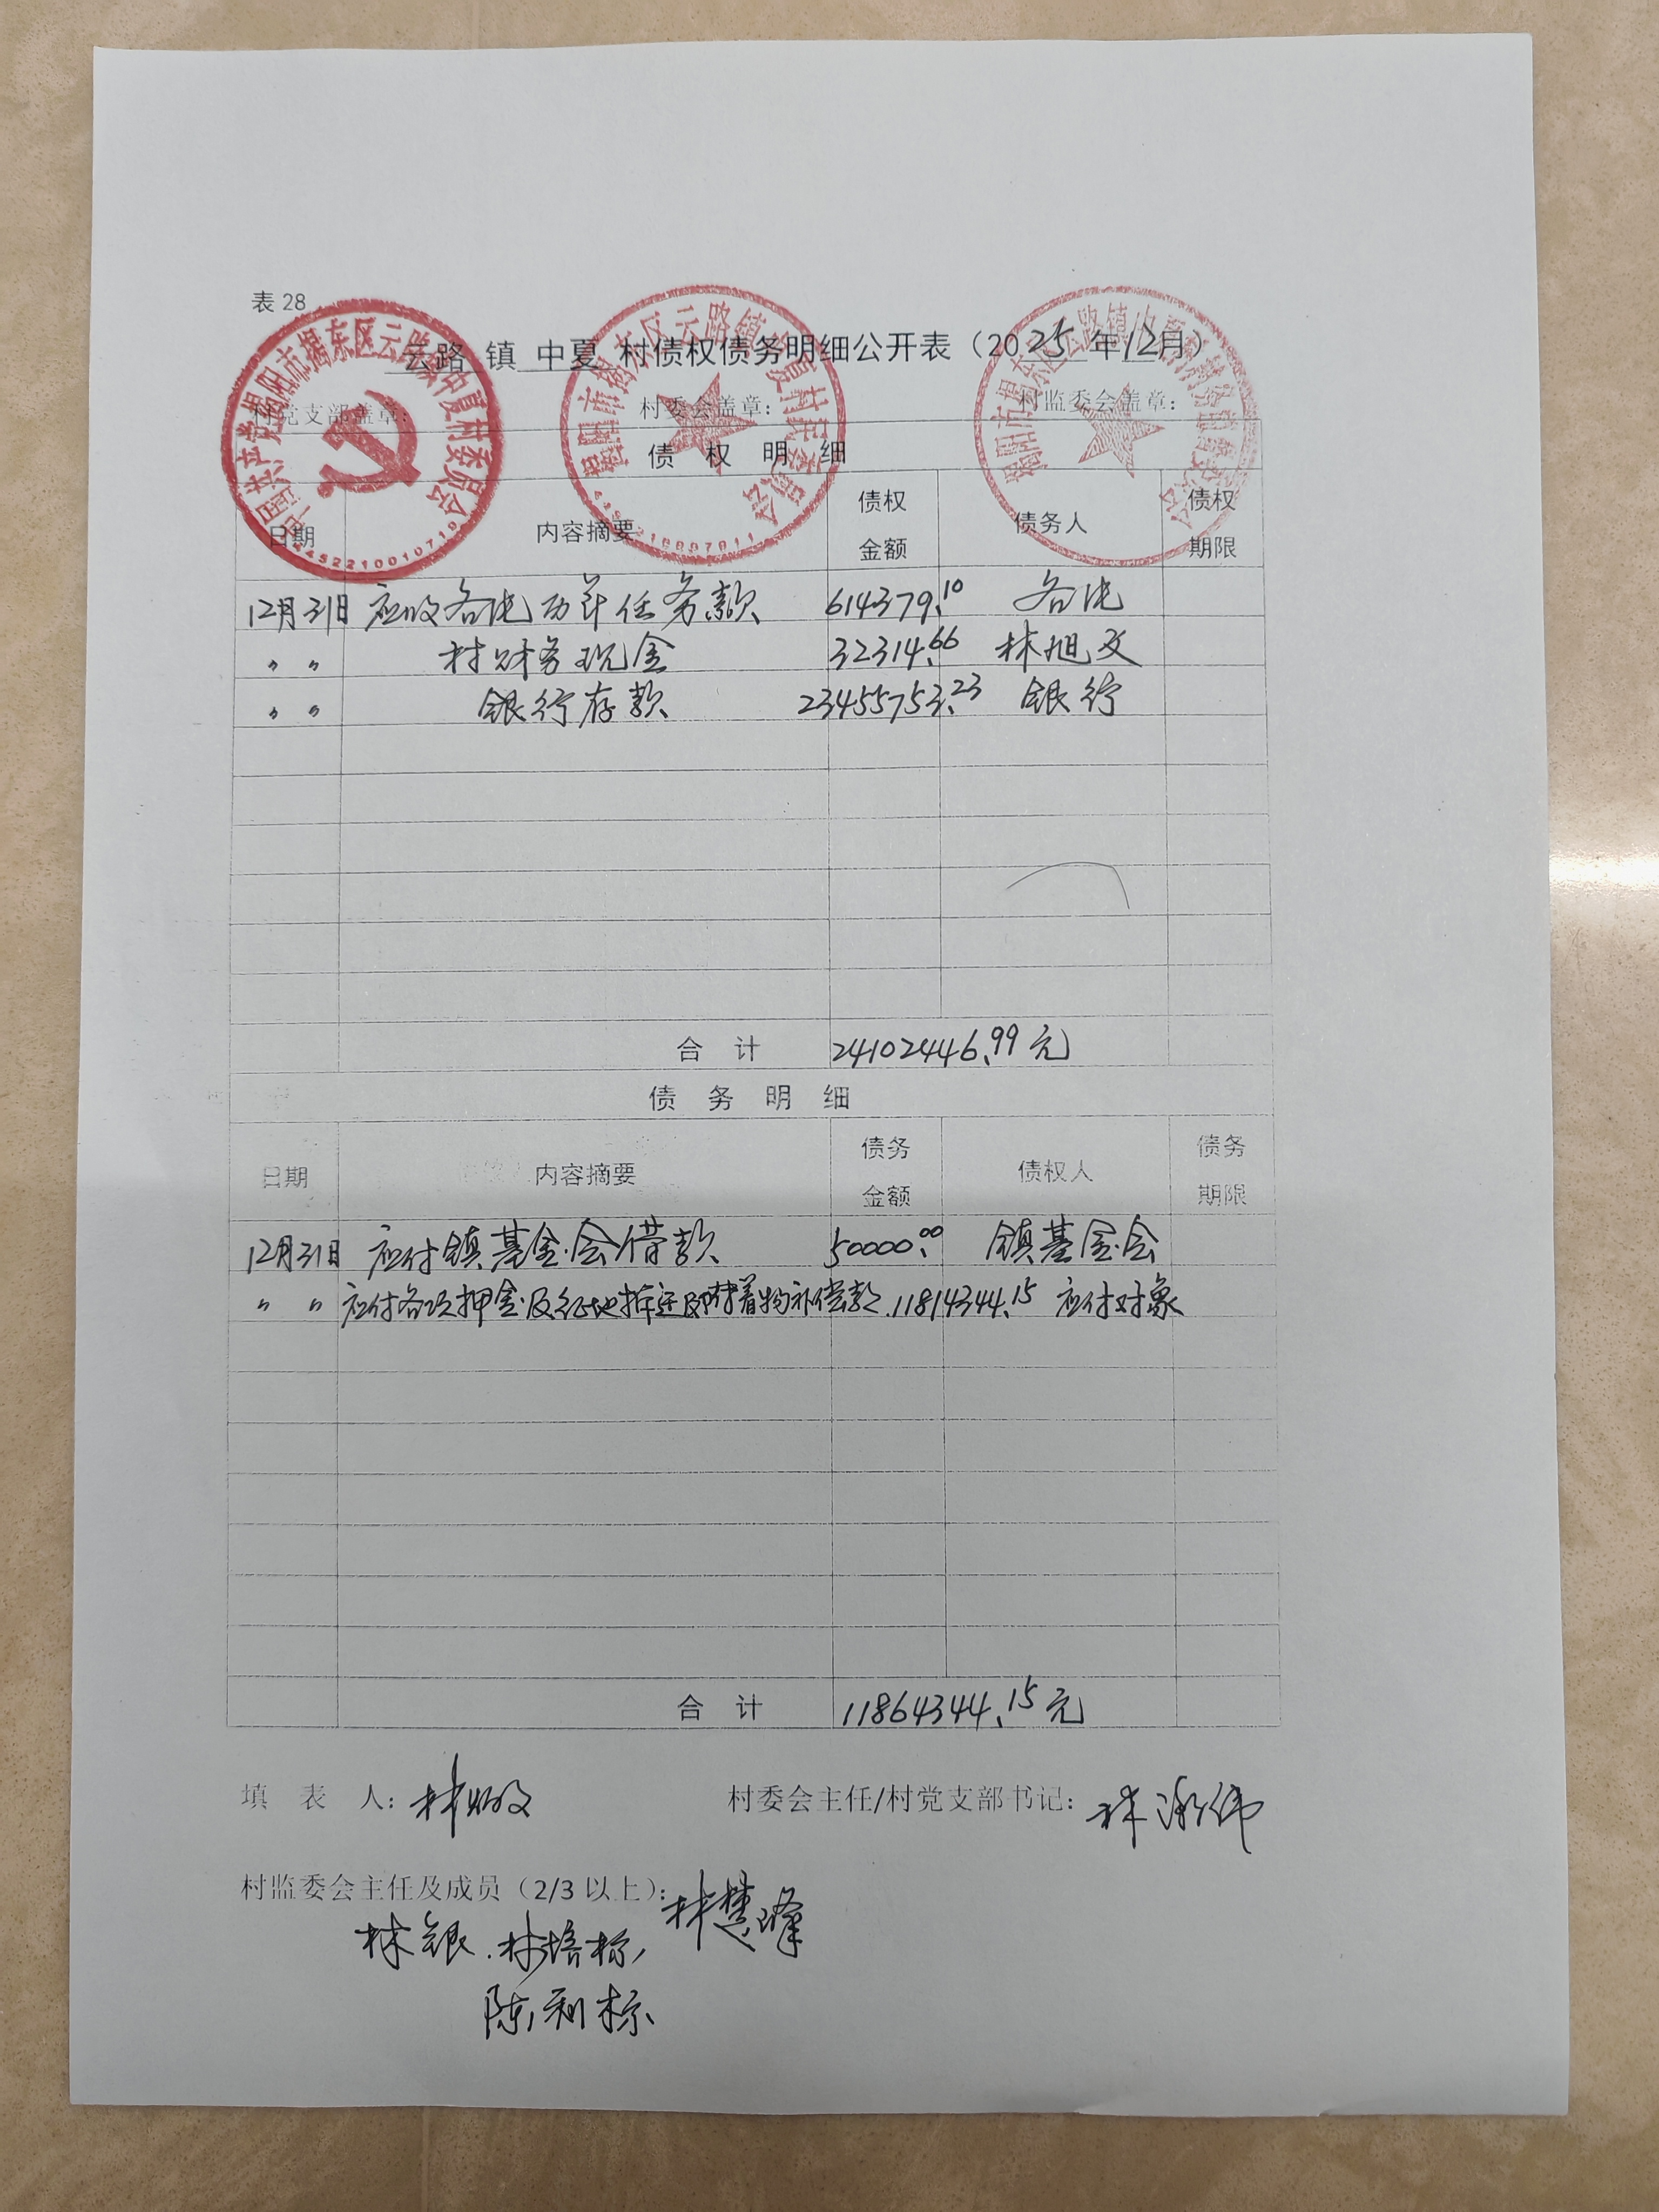 表 28
云路 镇 中夏 村债权债务明细公开表（2025 年12月）
村党支部盖章： 村委会盖章： 村监委会盖章：
中国共产党揭阳市揭东区云路镇中夏村委员会
揭阳市揭东区云路镇中夏村民委员会
债 权 明 细
日期 内容摘要 债权金额 债务人 债权期限
12月31日 应收各户历年任务款 614379.10 各户
〃 〃 村财务现金 32314.66 林旭文
〃 〃 银行存款 23455753.23 银行
合 计 24102446.99元
债 务 明 细
日期 内容摘要 债务金额 债权人 债务期限
12月31日 应付镇基金会借款 50000.00 镇基金会
〃 〃 应付各项押金及征地拆迁及附着物补偿款 11814344.15 应付对象
合 计 11864344.15元
填 表 人：林 文 村委会主任/村党支部书记：林 伟
村监委会主任及成员（2/3 以上）：林楚峰
林银、林培标、
陈利标